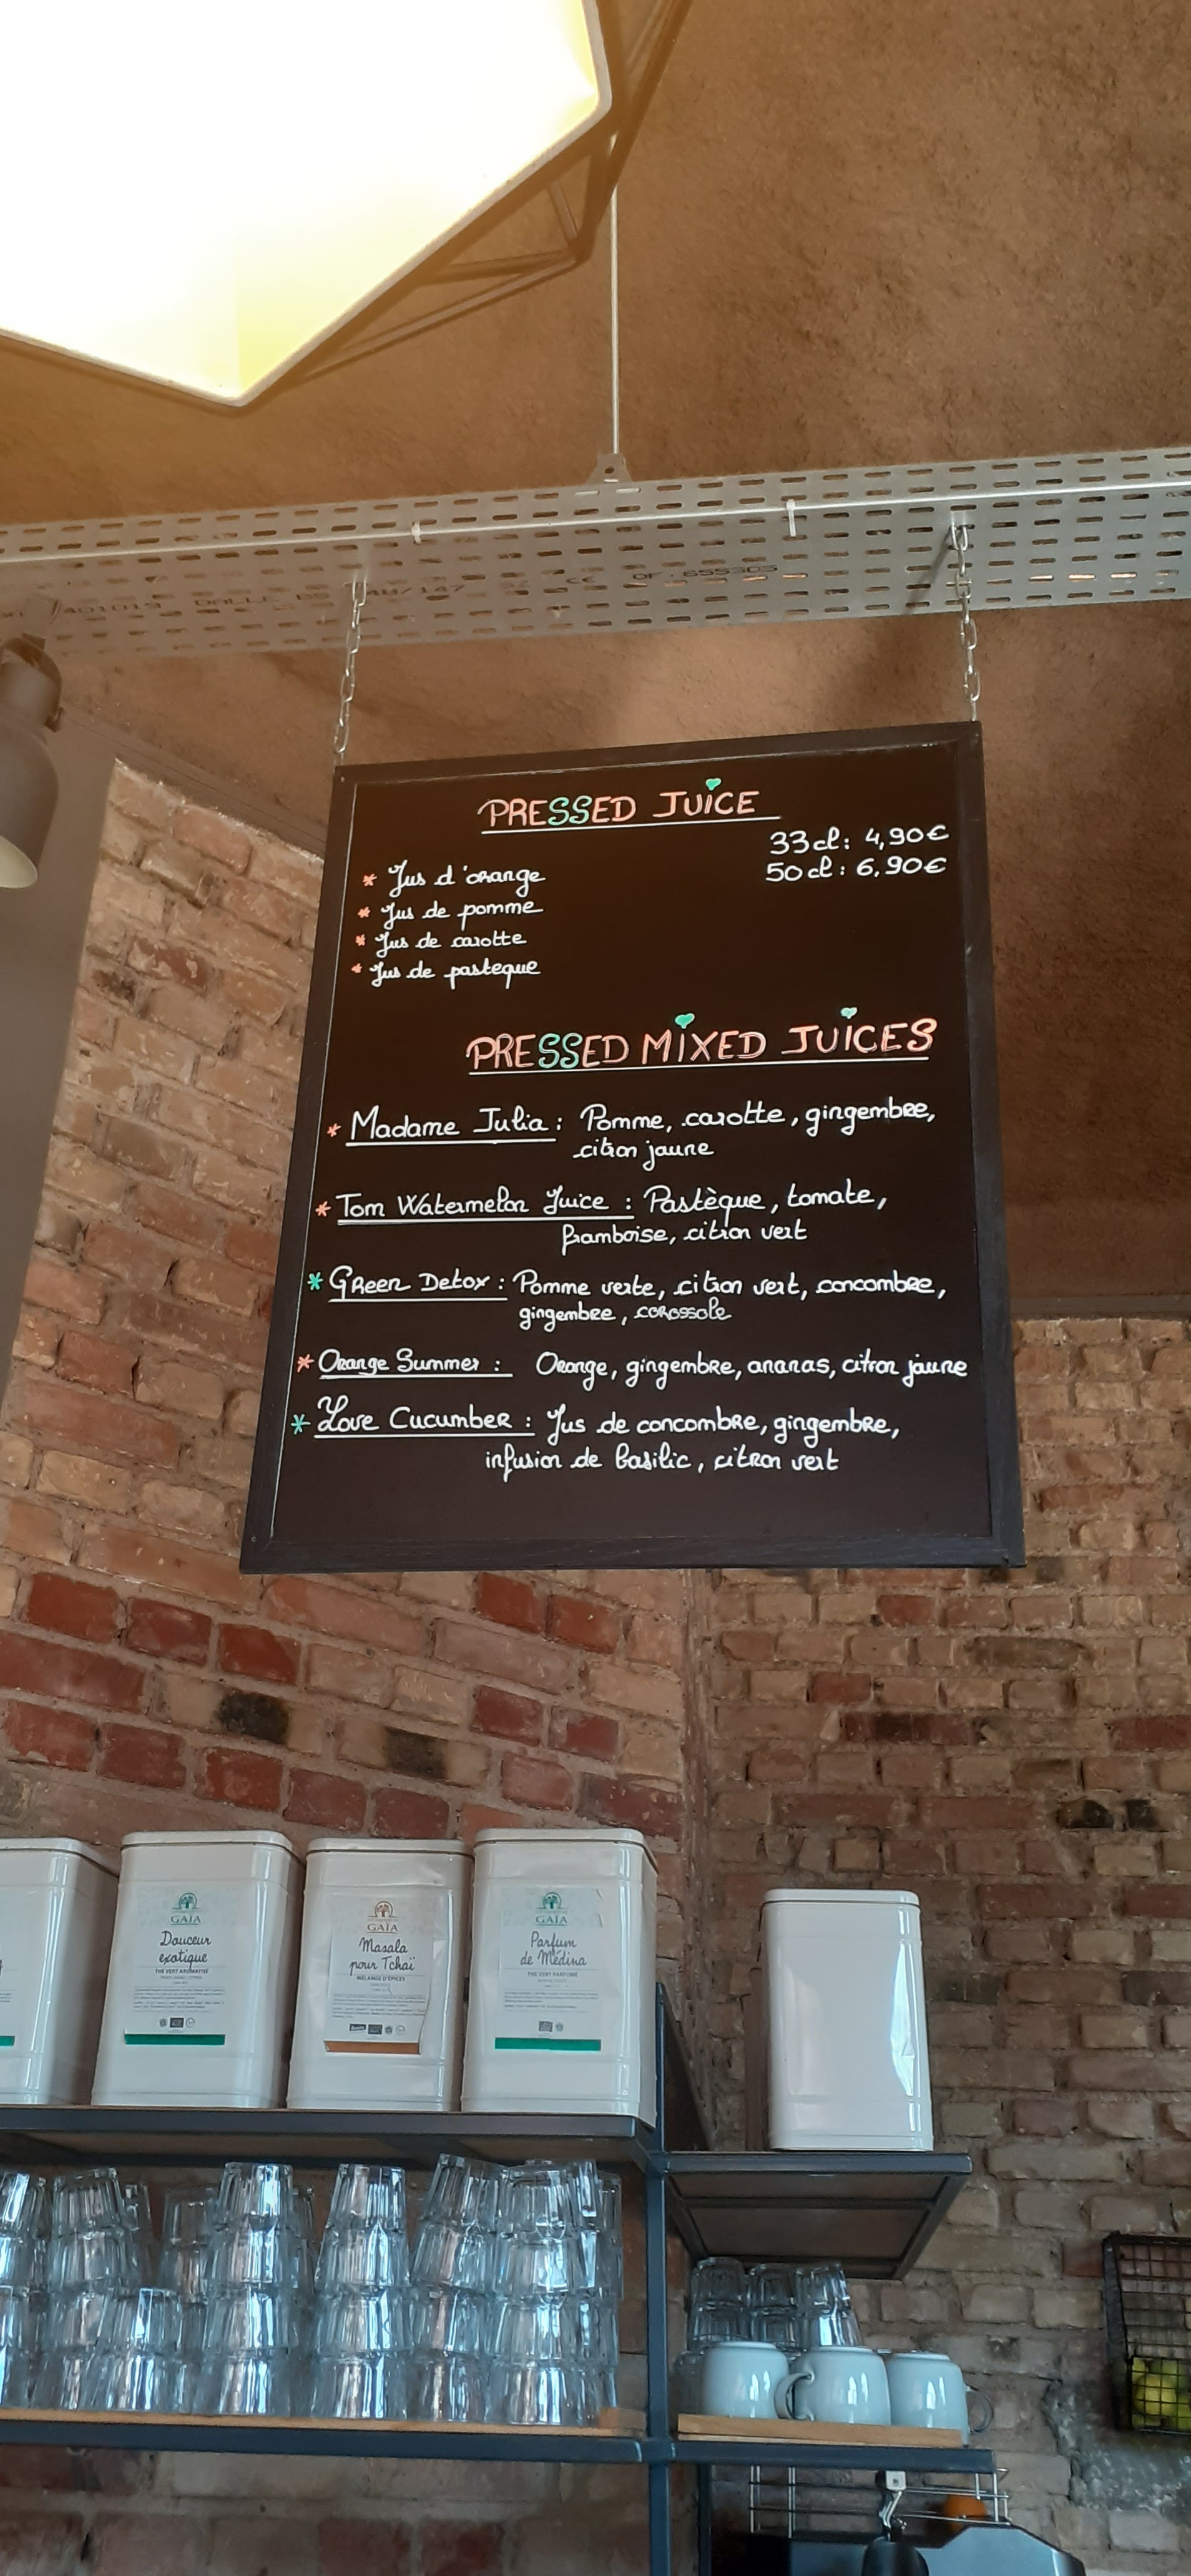 401019 DALLE BS 147 CE OF: 655305
PRESSED JUICE
33cl: 4,90€
50cl: 6,90€
* Jus d'orange
* Jus de pomme
* Jus de carotte
* Jus de pasteque
PRESSED MIXED JUICES
* Madame Julia : Pomme, carotte, gingembre,
citron jaune
* Tom Watermelon Juice : Pastèque, tomate,
framboise, citron vert
* Green Detox : Pomme verte, citron vert, concombre,
gingembre, corossole
* Orange Summer : Orange, gingembre, ananas, citron jaune
* Love Cucumber : Jus de concombre, gingembre,
infusion de basilic, citron vert
GAÏA
Douceur
exotique
THÉ VERT AROMATISÉ
GAÏA
Masala
pour Tchaï
MÉLANGE D'ÉPICES
GAÏA
Parfum
de Médina
THÉ VERT PARFUMÉ